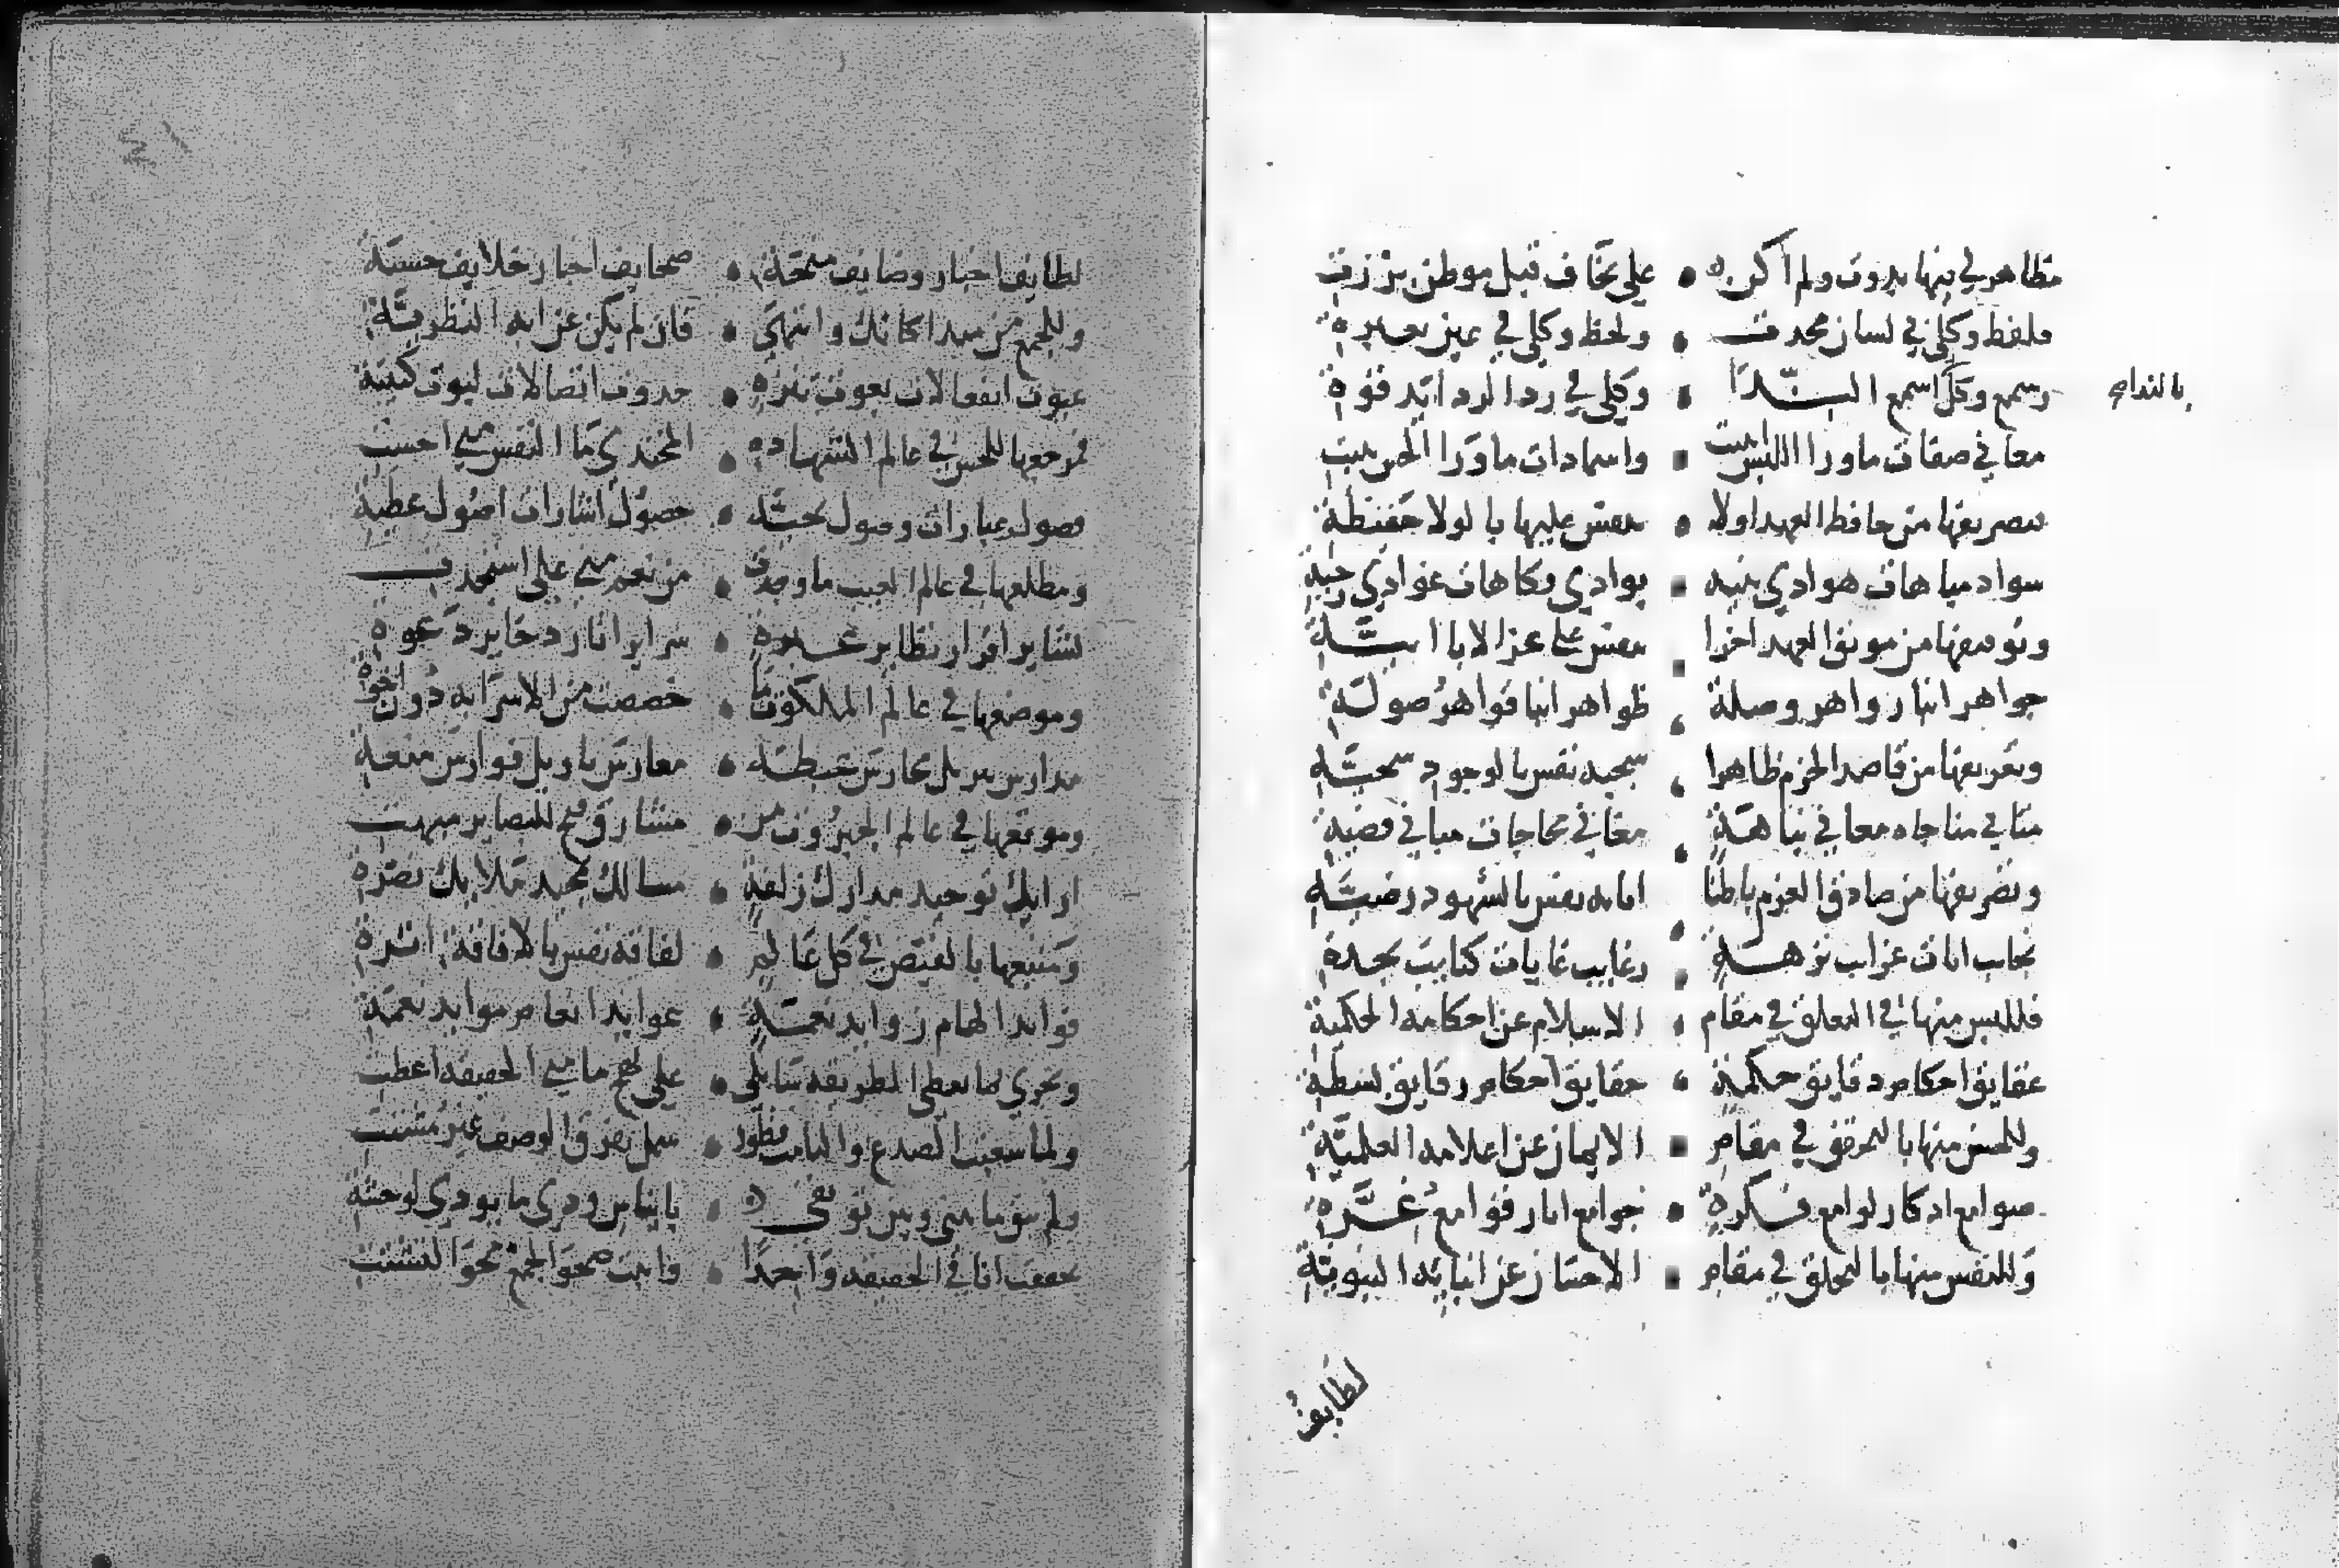 مظاهر لي فيها بدوت ولم اكن • علي بخاف قبل موطن برزتي
فلفظ وكلي في لسان محدث • ولحظ وكلي في عين بعبرة
وسمع وكل اسمع الندا • وكلي في رد الردا يد قوة
بالنداء صح
معاني صفات ماورا اللبس اثبتت • واسماء ذات ماورا الحس بثت
فتصريفها من حافظ العهد اولا • بنفس عليها بالولا حفيظة
مباهات هوادي تنبه • بوادي فكاهات غوادي رجية
وتوقيفها من موثق العهد اخرا • بنفس على عز الابا ابية
جواهر انبا زواهر وصلة • ظواهر انبا قواهر صولة
وتعريفها من قاصد الحزم ظاهرا • سجية نفس بالوجود سخية
مثاني مناجاة معاني نباهة • مغاني محاجات مباني قضية
وتشريفها من صادق العزم باطنا • انابة نفس بالشهود رضية
نجايب ايات غرايب نزهة • رغايب غايات كتايب نجدة
فللبس منها في التعلق في مقام • الاسلام عن احكامه الحكمية
عقايق احكام دقايق حكمة • حقايق احكام رقايق بسطة
وللحس منها بالتحقق في مقام • الايمان عن اعلامه العلمية
صوامع اذكار لوامع فكرة • جوامع اثار قوامع عزة
وللنفس منها بالتخلق في مقام • الاحسان عن انبايه النبوية
لطايف
لطايف اخبار وضايف منحة • صحايف احبار خلايف حسبة
وللجمع من مبدا كانك وانتهى • فان لم يكن عن اية النظرية
غيوث انفعالات بعوث تنزه • حدوث اتصالات ليوث كتيبة
فمرجعها للحس في عالم الشهادة • المجتدي ما النفس مني احست
فصول عبارات وصول تحية • حصول اشارات اصول عطية
ومطلعها في عالم الغيب ما وجدت • من نعم مني علي استجدت
بشاير اقرار بصاير عبرة • سراير اثار دخاير دعوة
وموضعها في عالم الملكوت ما • خصصت من الاسرا به دون اخوة
مدارس تنزيل محارس غبطة • مغارس تاويل فوارس منعة
وموقعها في عالم الجبروت من • مشارق فتح للبصاير مبهت
ارايك توحيد مدارك زلفة • مسالك تمجيد ملايك نصرة
ومنبعها بالفيض في كل عالم • لفاقة نفس بالافاقة اثرة
فوايد الهام زوايد نعمة • عوايد انعام موايد نعمة
وتجري بما تعطي الطريقة سايلي • على نهج ما مني الحقيقة اعطت
ولما شعبت الصدع والتامت فطور • شمل بفرق الوصف غير مشتت
ولم يبق ما بيني وبين توثقي • بايناس ودي ما يودي لوحشة
تحققت انا في الحقيقة واحدا • واثبت صحو الجمع محو التشتت